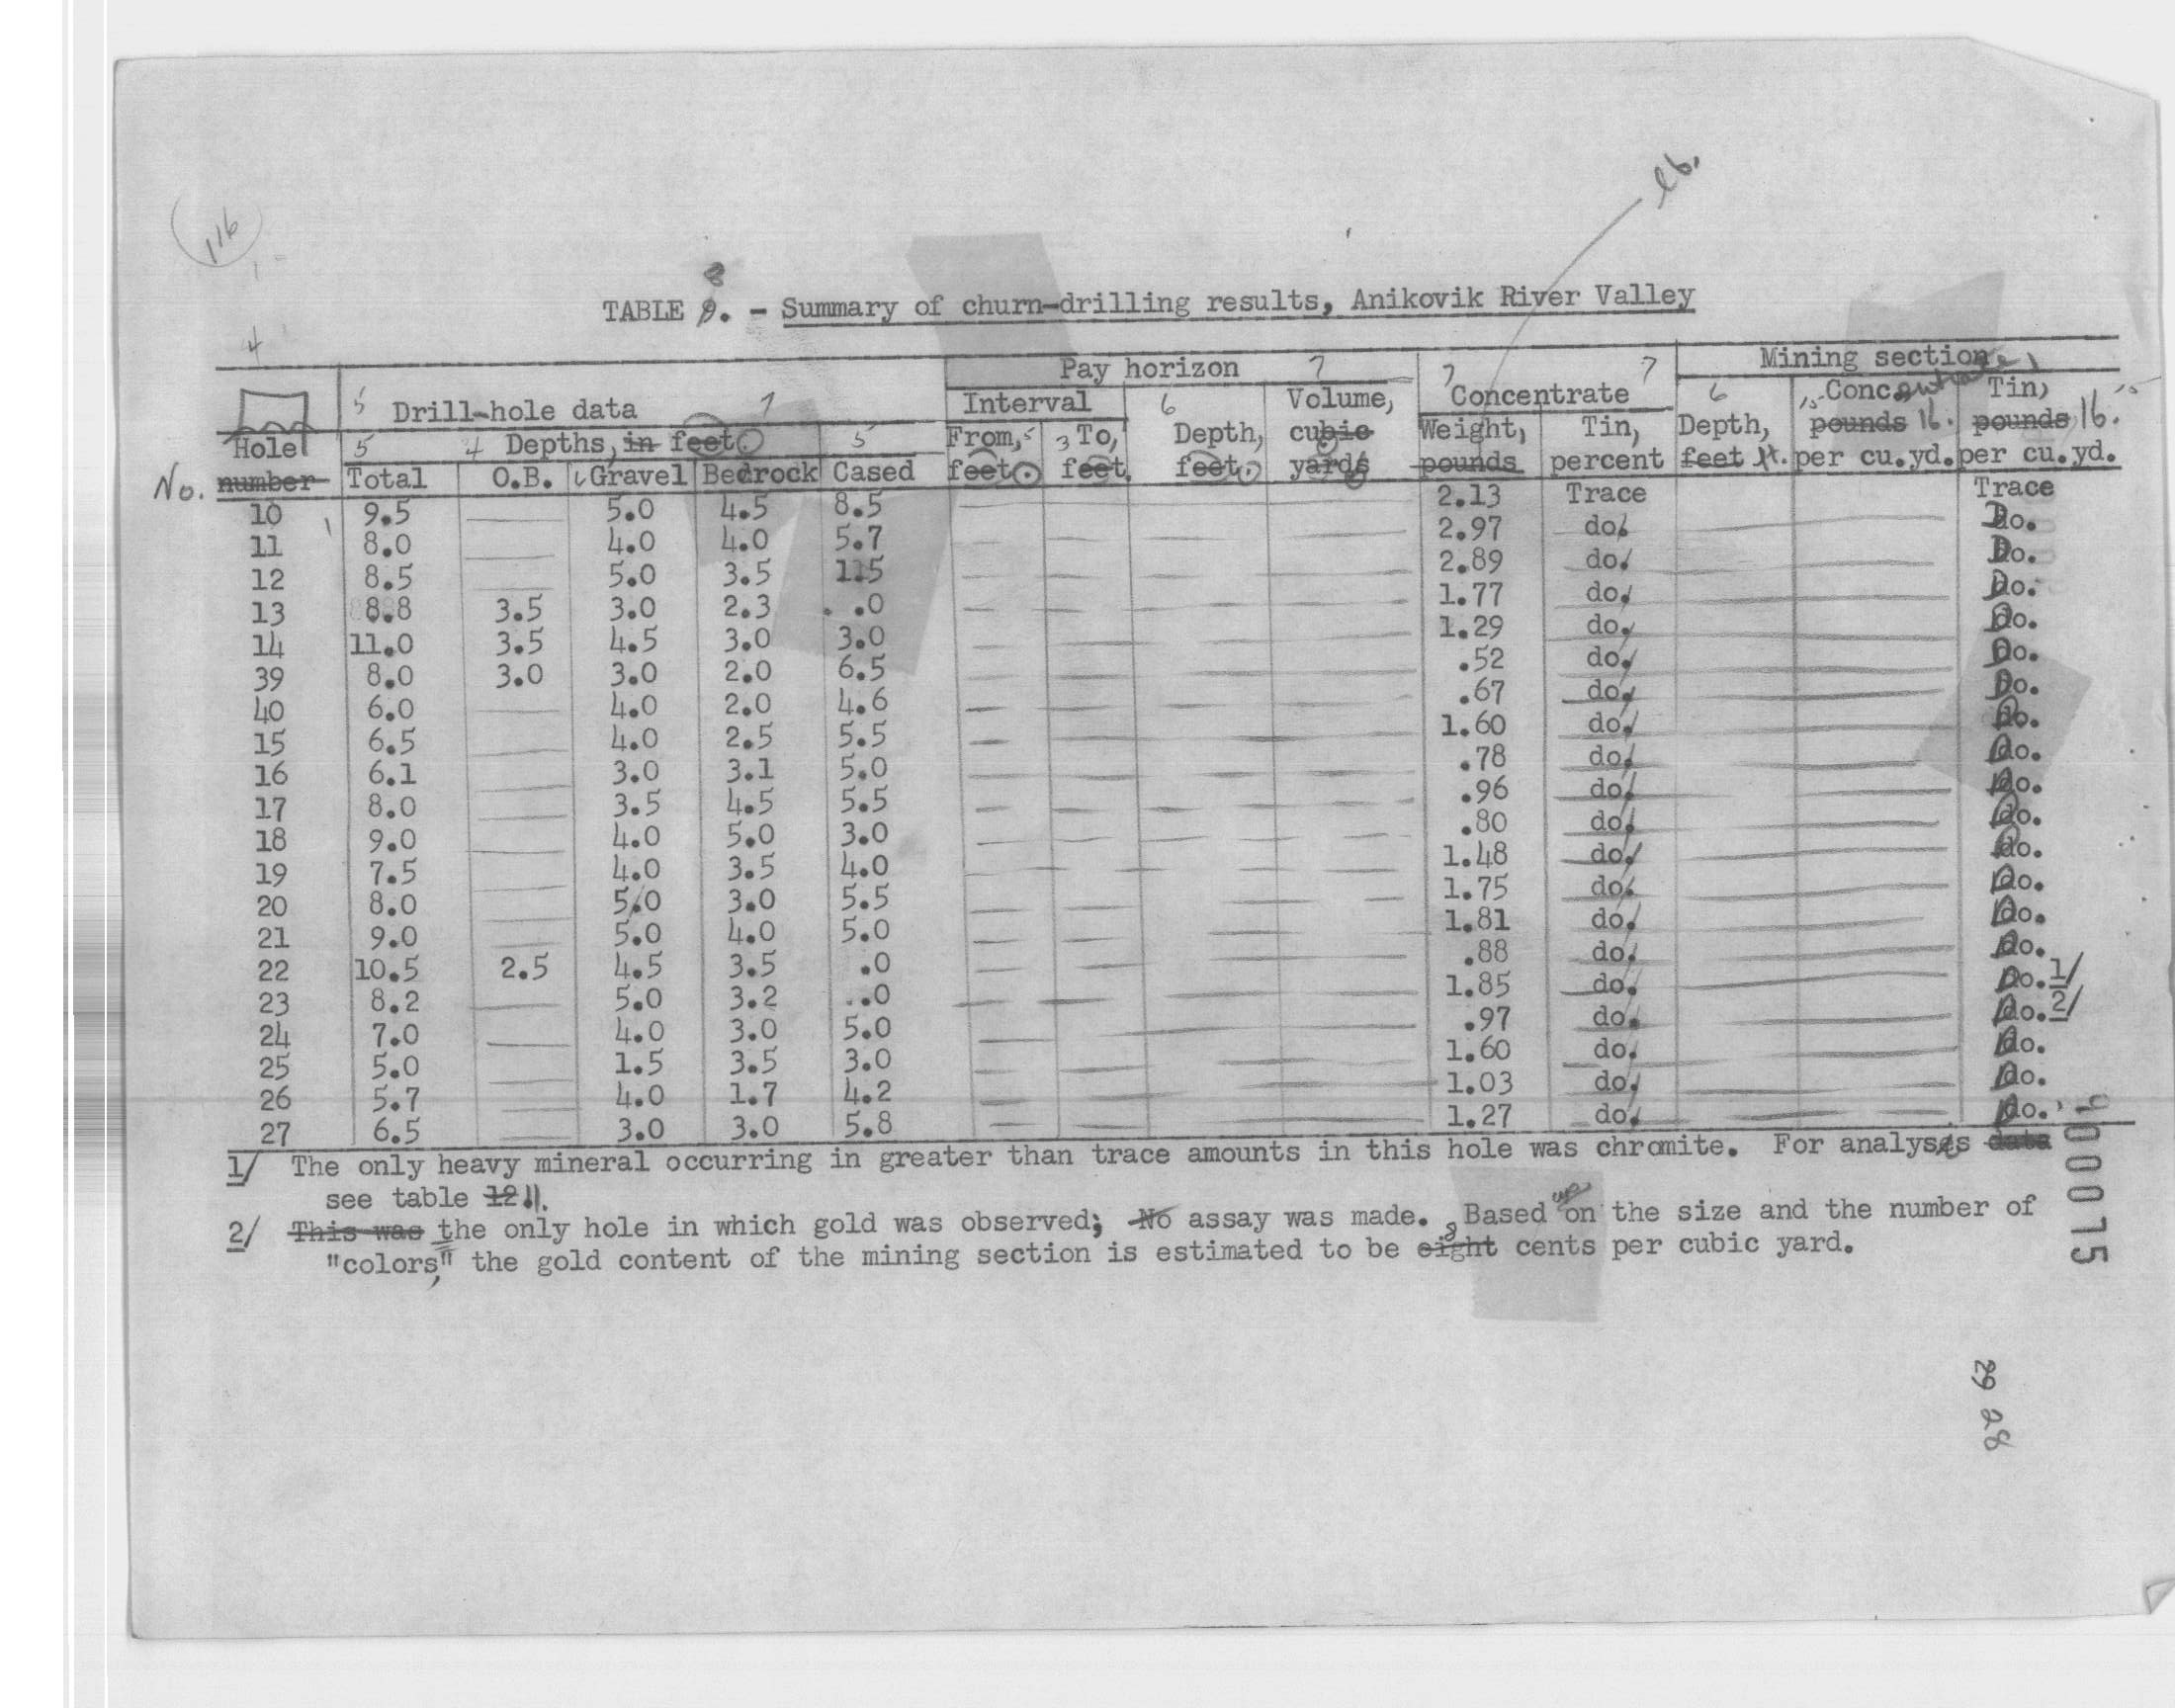 116
lb.
8
TABLE 9. - Summary of churn-drilling results, Anikovik River Valley
4
Pay horizon 7 Mining section
5 Drill-hole data 7 Interval 6 Volume, 7 Concentrate 7 6 Concentrate, Tin,
Hole 5 4 Depths, in feet. 5 From, 5 3 To, Depth, cubic Weight, Tin, Depth, pounds lb. pounds lb.
No. number Total O.B. Gravel Bedrock Cased feet. feet. feet. yards pounds percent feet ft. per cu.yd. per cu.yd.
10 9.5 5.0 4.5 8.5 2.13 Trace Trace
11 8.0 4.0 4.0 5.7 2.97 do. Do.
12 8.5 5.0 3.5 2.89 do. Do.
13 8.8 3.5 3.0 2.3 .0 1.77 do. Do.
14 11.0 3.5 4.5 3.0 3.0 1.29 do. Do.
39 8.0 3.0 3.0 2.0 6.5 .52 do. Do.
40 6.0 4.0 2.0 4.6 .67 do. Do.
15 6.5 4.0 2.5 5.5 1.60 do. Do.
16 6.1 3.0 3.1 5.0 .78 do. Do.
17 8.0 3.5 4.5 5.5 .96 do. Do.
18 9.0 4.0 5.0 3.0 .80 do. Do.
19 7.5 4.0 3.5 4.0 1.48 do. Do.
20 8.0 5.0 3.0 5.5 1.75 do. Do.
21 9.0 5.0 4.0 5.0 1.81 do. Do.
22 10.5 2.5 4.5 3.5 .0 .88 do. Do.
23 8.2 5.0 3.2 .0 1.85 do. Do.1/
24 7.0 4.0 3.0 5.0 .97 do. Do.2/
25 5.0 1.5 3.5 3.0 1.60 do. Do.
26 5.7 4.0 1.7 4.2 1.03 do. Do.
27 6.5 3.0 3.0 5.8 1.27 do. Do.
1/ The only heavy mineral occurring in greater than trace amounts in this hole was chromite. For analyses data
see table 12 11.
2/ This was the only hole in which gold was observed; No assay was made. Based upon the size and the number of
"colors," the gold content of the mining section is estimated to be eight 8 cents per cubic yard.
900075
29 28